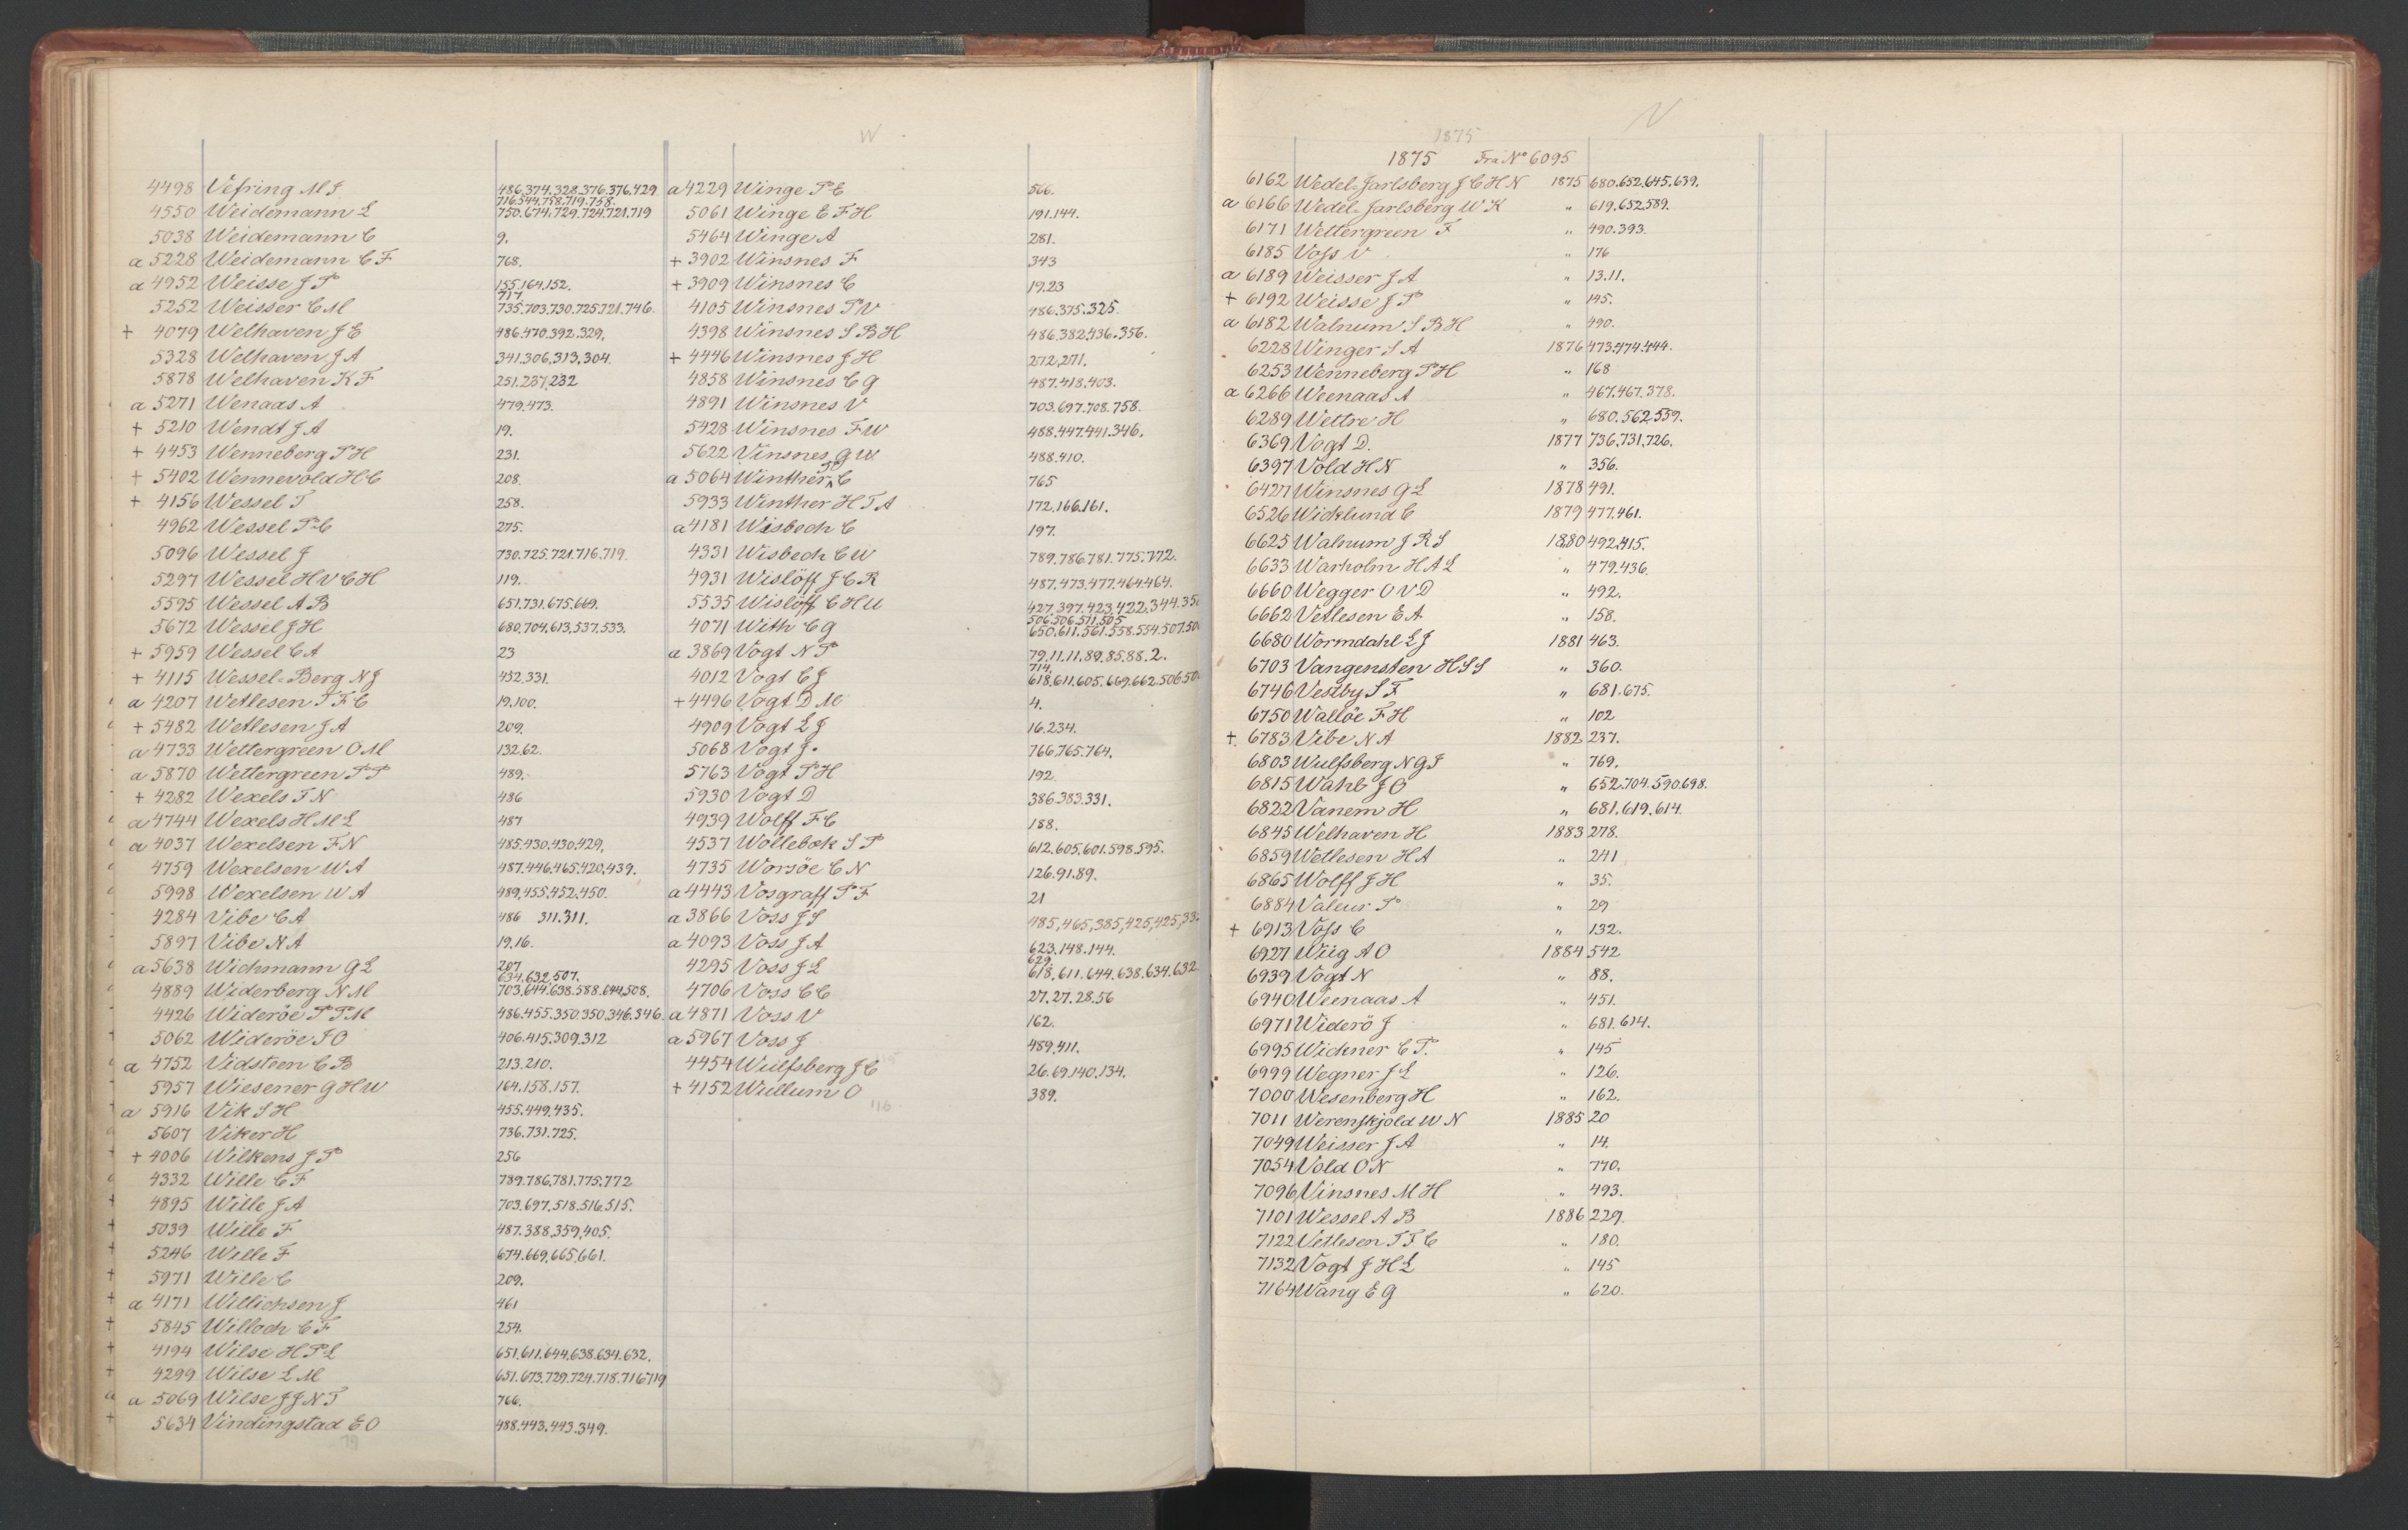 W
4498 Vefring M J 486.374.328.376.376.429
716.544.758.719.758.
4550 Weidemann L 750.674.729.724.721.719
5038 Weidemann C 9.
a 5228 Weidemann C F 768.
a 4952 Weisse J P 155.164.152.
717
5252 Weisser C M 735.703.730.725.721.746.
+ 4079 Welhaven J E 486.470.392.329.
5328 Welhaven J A 341.306.313.304.
5878 Welhaven K F 251.237.232
a 5271 Wenaas A 479.473.
+ 5210 Wendt J A 19.
+ 4453 Wenneberg P H 231.
+ 5402 Wennevold H C 208.
+ 4156 Wessel T 258.
4962 Wessel P C 275.
5096 Wessel J 730.725.721.716.719.
5297 Wessel H V C H 119.
5595 Wessel A B 651.731.675.669.
5672 Wessel J H 680.704.613.537.533.
+ 5959 Wessel C A 23
+ 4115 Wessel-Berg N J 452.331.
a 4207 Wetlesen T F C 19.100.
+ 5482 Wetlesen J A 209.
a 4733 Wettergreen O M 132.62.
a 5870 Wettergreen P P 489.
+ 4282 Wexels F N 486
a 4744 Wexels H M L 487
a 4037 Wexelsen F N 485.430.430.429.
4759 Wexelsen W A 487.446.465.420.439.
5998 Wexelsen W A 489.455.452.450.
4284 Vibe C A 486 311.311.
5897 Vibe N A 19.16.
a 5638 Wichmann G L 207
634.632.507.
4889 Widerberg N M 703.644.638.588.644.508.
4426 Wideröe P T M 486.455.350.350.346.346.
5062 Wideröe J O 406.415.309.312
a 4752 Vidsteen C B 213.210.
5957 Wiesener G H W 164.158.157.
a 5916 Vik S H 455.449.435.
5607 Viker H 736.731.725.
+ 4006 Wilkens J P 256
4332 Wille C F 789.786.781.775.772
4895 Wille J A 703.697.518.516.515.
5039 Wille F 487.388.359.405.
5246 Wille F 674.669.665.661.
5971 Wille C 209.
a 4171 Willichsen J 461
5845 Willoch C F 254.
4194 Wilse H P L 651.611.644.638.634.632.
4299 Wilse L M 651.673.729.724.718.716.719
a 5069 Wilse J J N T 766.
5634 Vindingstad E O 488.443.443.349.
79
a 4229 Winge P C 566.
5061 Winge E F H 191.144.
5464 Winge A 281.
+ 3902 Winsnes F 343
+ 3909 Winsnes C 19.23
4105 Winsnes P V 486.375.325.
4398 Winsnes S B H 486.382.436.356.
+ 4446 Winsnes J H 272.271.
4858 Winsnes C G 487.418.403.
4891 Winsnes V 703.697.708.758.
5428 Winsnes F W 488.447.441.346.
5622 Vinsnes G W 488.410.
a 5064 Winther C 765
5933 Winther H T A 172.166.161.
a 4181 Wisbech C 197.
4331 Wisbech C W 789.786.781.775.772.
4931 Wislöff J C R 487.473.477.464.464.
5535 Wislöff C H U 427.397.423.422.344.35
506.506.511.505
4071 With C G 650.611.561.558.554.507.50
a 3869 Vogt N P 79.11.11.89.85.88.2.
714.
4012 Vogt C J 618.611.605.669.662.506.50
+ 4496 Vogt D M 4.
4909 Vogt L J 16.234.
5068 Vogt J. 766.765.764.
5763 Vogt P H 192
5930 Vogt D 386.383.331.
4939 Wolff F C 188.
4537 Wollebæk S P 612.605.601.598.595.
4735 Worsöe C N 126.91.89.
a 4443 Vosgraff P F 21
a 3866 Voss J S 485,465,385,425,425,33
a 4093 Voss J A 623.148.144.
629.
4295 Voss J L 618.611.644.638.634.632
4706 Voss C C 27.27.28.56
a 4871 Voss V 162.
a 5967 Voss J 489.411.
4454 Wulfsberg J C 26.69.140.134.
+ 4152 Wullum O 389.
116
1875
1875 Fra No 6095
6162 Wedel-Jarlsberg J C H N 1875 680.652.645.639.
a 6166 Wedel-Jarlsberg W K " 619.652.589.
6171 Wettergreen F " 490.393.
6185 Voss V " 176
a 6189 Weisser J A " 13.11.
+ 6192 Weisse J P " 145.
a 6182 Walnum S B H " 490.
6228 Winger S A 1876 473.474.444.
6253 Wenneberg P H " 168
a 6266 Weenaas A " 467.467.378.
6289 Wettre H " 680.562.559.
6369 Vogt D. 1877 736.731.726.
6397 Vold H N " 356.
6427 Winsnes G L 1878 491.
6526 Wicklund C 1879 477.461.
6625 Walnum J R S 1880 492.415.
6633 Warholm H A L " 479.436.
6660 Wegger O V D " 492.
6662 Vetlesen E A " 158.
6680 Wormdahl L J 1881 463.
6703 Vangensten H S S " 360.
6746 Vestby S F " 681.675.
6750 Wallöe F H " 102
+ 6783 Vibe N A 1882 237.
6803 Wulfsberg N G J " 769.
6815 Wahl J O " 652.704.590.698.
6822 Vanem H " 681.619.614.
6845 Welhaven H 1883 278.
6859 Wetlesen H A " 241
6865 Wolff J H " 35.
6884 Valeur P " 29
+ 6913 Voss C " 132.
6927 Wiig A O 1884 542
6939 Vogt N " 88.
6940 Weenaas A " 451.
6971 Widerö J " 681.614.
6995 Wichner C P. " 145
6999 Wegner J L " 126.
7000 Wesenberg H " 162.
7011 Werenskjold W N 1885 20
7049 Weisser J A " 14.
7054 Vold O N " 770.
7096 Vinsnes M H " 493.
7101 Wessel A B 1886 229.
7122 Vetlesen T F C " 180.
7132 Vogt J H L " 145
7164 Wang E G " 620.